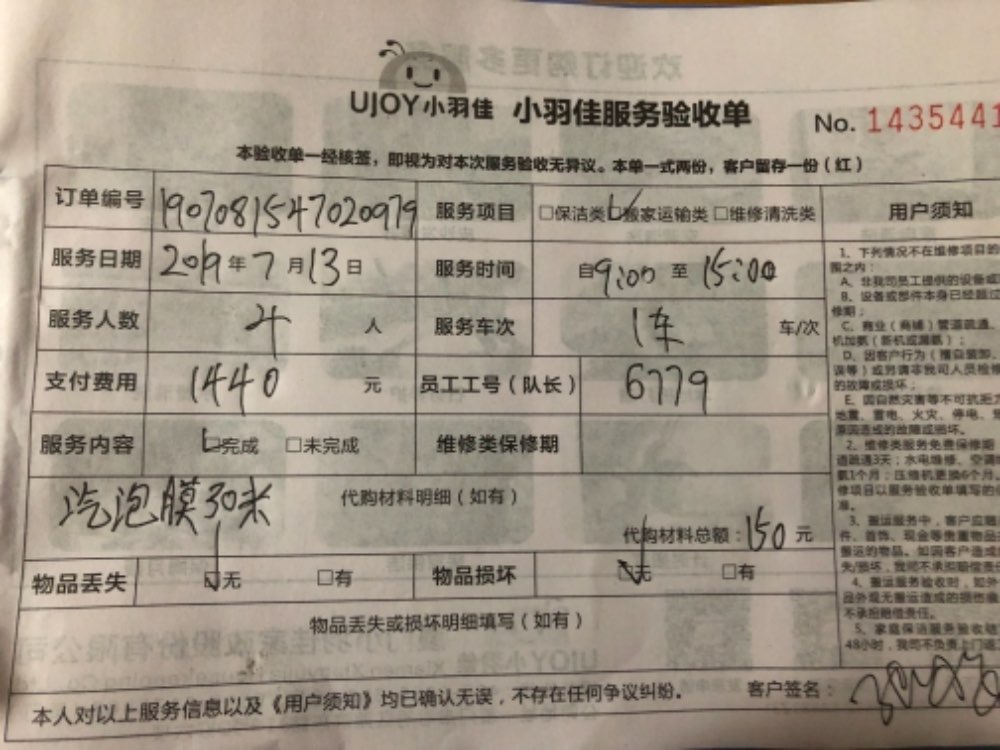 UJOY小羽佳 小羽佳服务验收单
No. 1435441
本验收单一经核签，即视为对本次服务验收无异议。本单一式两份，客户留存一份（红）
订单编号 1907081547020979 服务项目 □保洁类 ☑搬家运输类 □维修清洗类 用户须知
服务日期 2019年7月13日 服务时间 自9:00至15:00
服务人数 4人 服务车次 1车 车/次
支付费用 1440元 员工工号（队长） 6779
服务内容 ☑完成 □未完成 维修类保修期
汽泡膜30米 代购材料明细（如有）
代购材料总额：150元
物品丢失 ☑无 □有 物品损坏 ☑无 □有
物品丢失或损坏明细填写（如有）
本人对以上服务信息以及《用户须知》均已确认无误，不存在任何争议纠纷。 客户签名：
1、下列情况不在维修项目的
围之内：
A、非我司员工提供的设备或
B、设备或部件本身已经超过
修期；
C、商业（商铺）管道疏通、
机加氨（新机或漏氨）；
D、因客户行为（擅自装卸、
误等）或另请非我司人员检修
的故障或损坏；
E、因自然灾害等不可抗拒力
地震、雷电、火灾、停电、
原因造成的故障或损坏。
2、维修类服务免费保修期
道疏通3天；水电维修、空调
氨1个月；压缩机更换6个月。
修项目以服务验收单填写的
准。
3、搬运服务中，客户应随
件、首饰、现金等贵重物品
搬运的物品。如因客户造成
失/损坏，我司不承担赔偿责任
4、搬运服务验收时，如外
品外观无搬运造成的损伤痕
不承担赔偿责任。
5、家庭保洁服务验收结
48小时，我司不负责上门返工
欢迎订购更多服